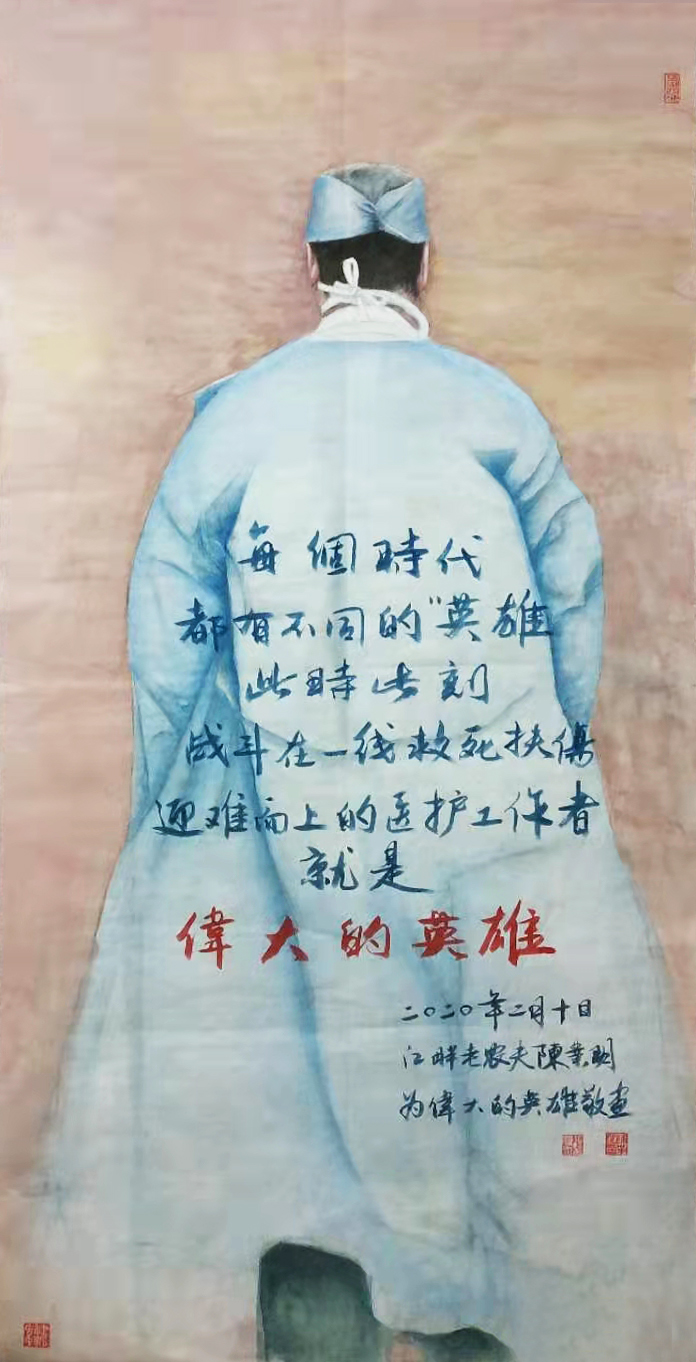 每個時代
都有不同的"英雄
此時此刻
战斗在一线救死扶傷
迎难而上的医护工作者
就是
偉大的英雄
二〇二〇年二月十日
江畔老农夫陳業明
为偉大的英雄敬画